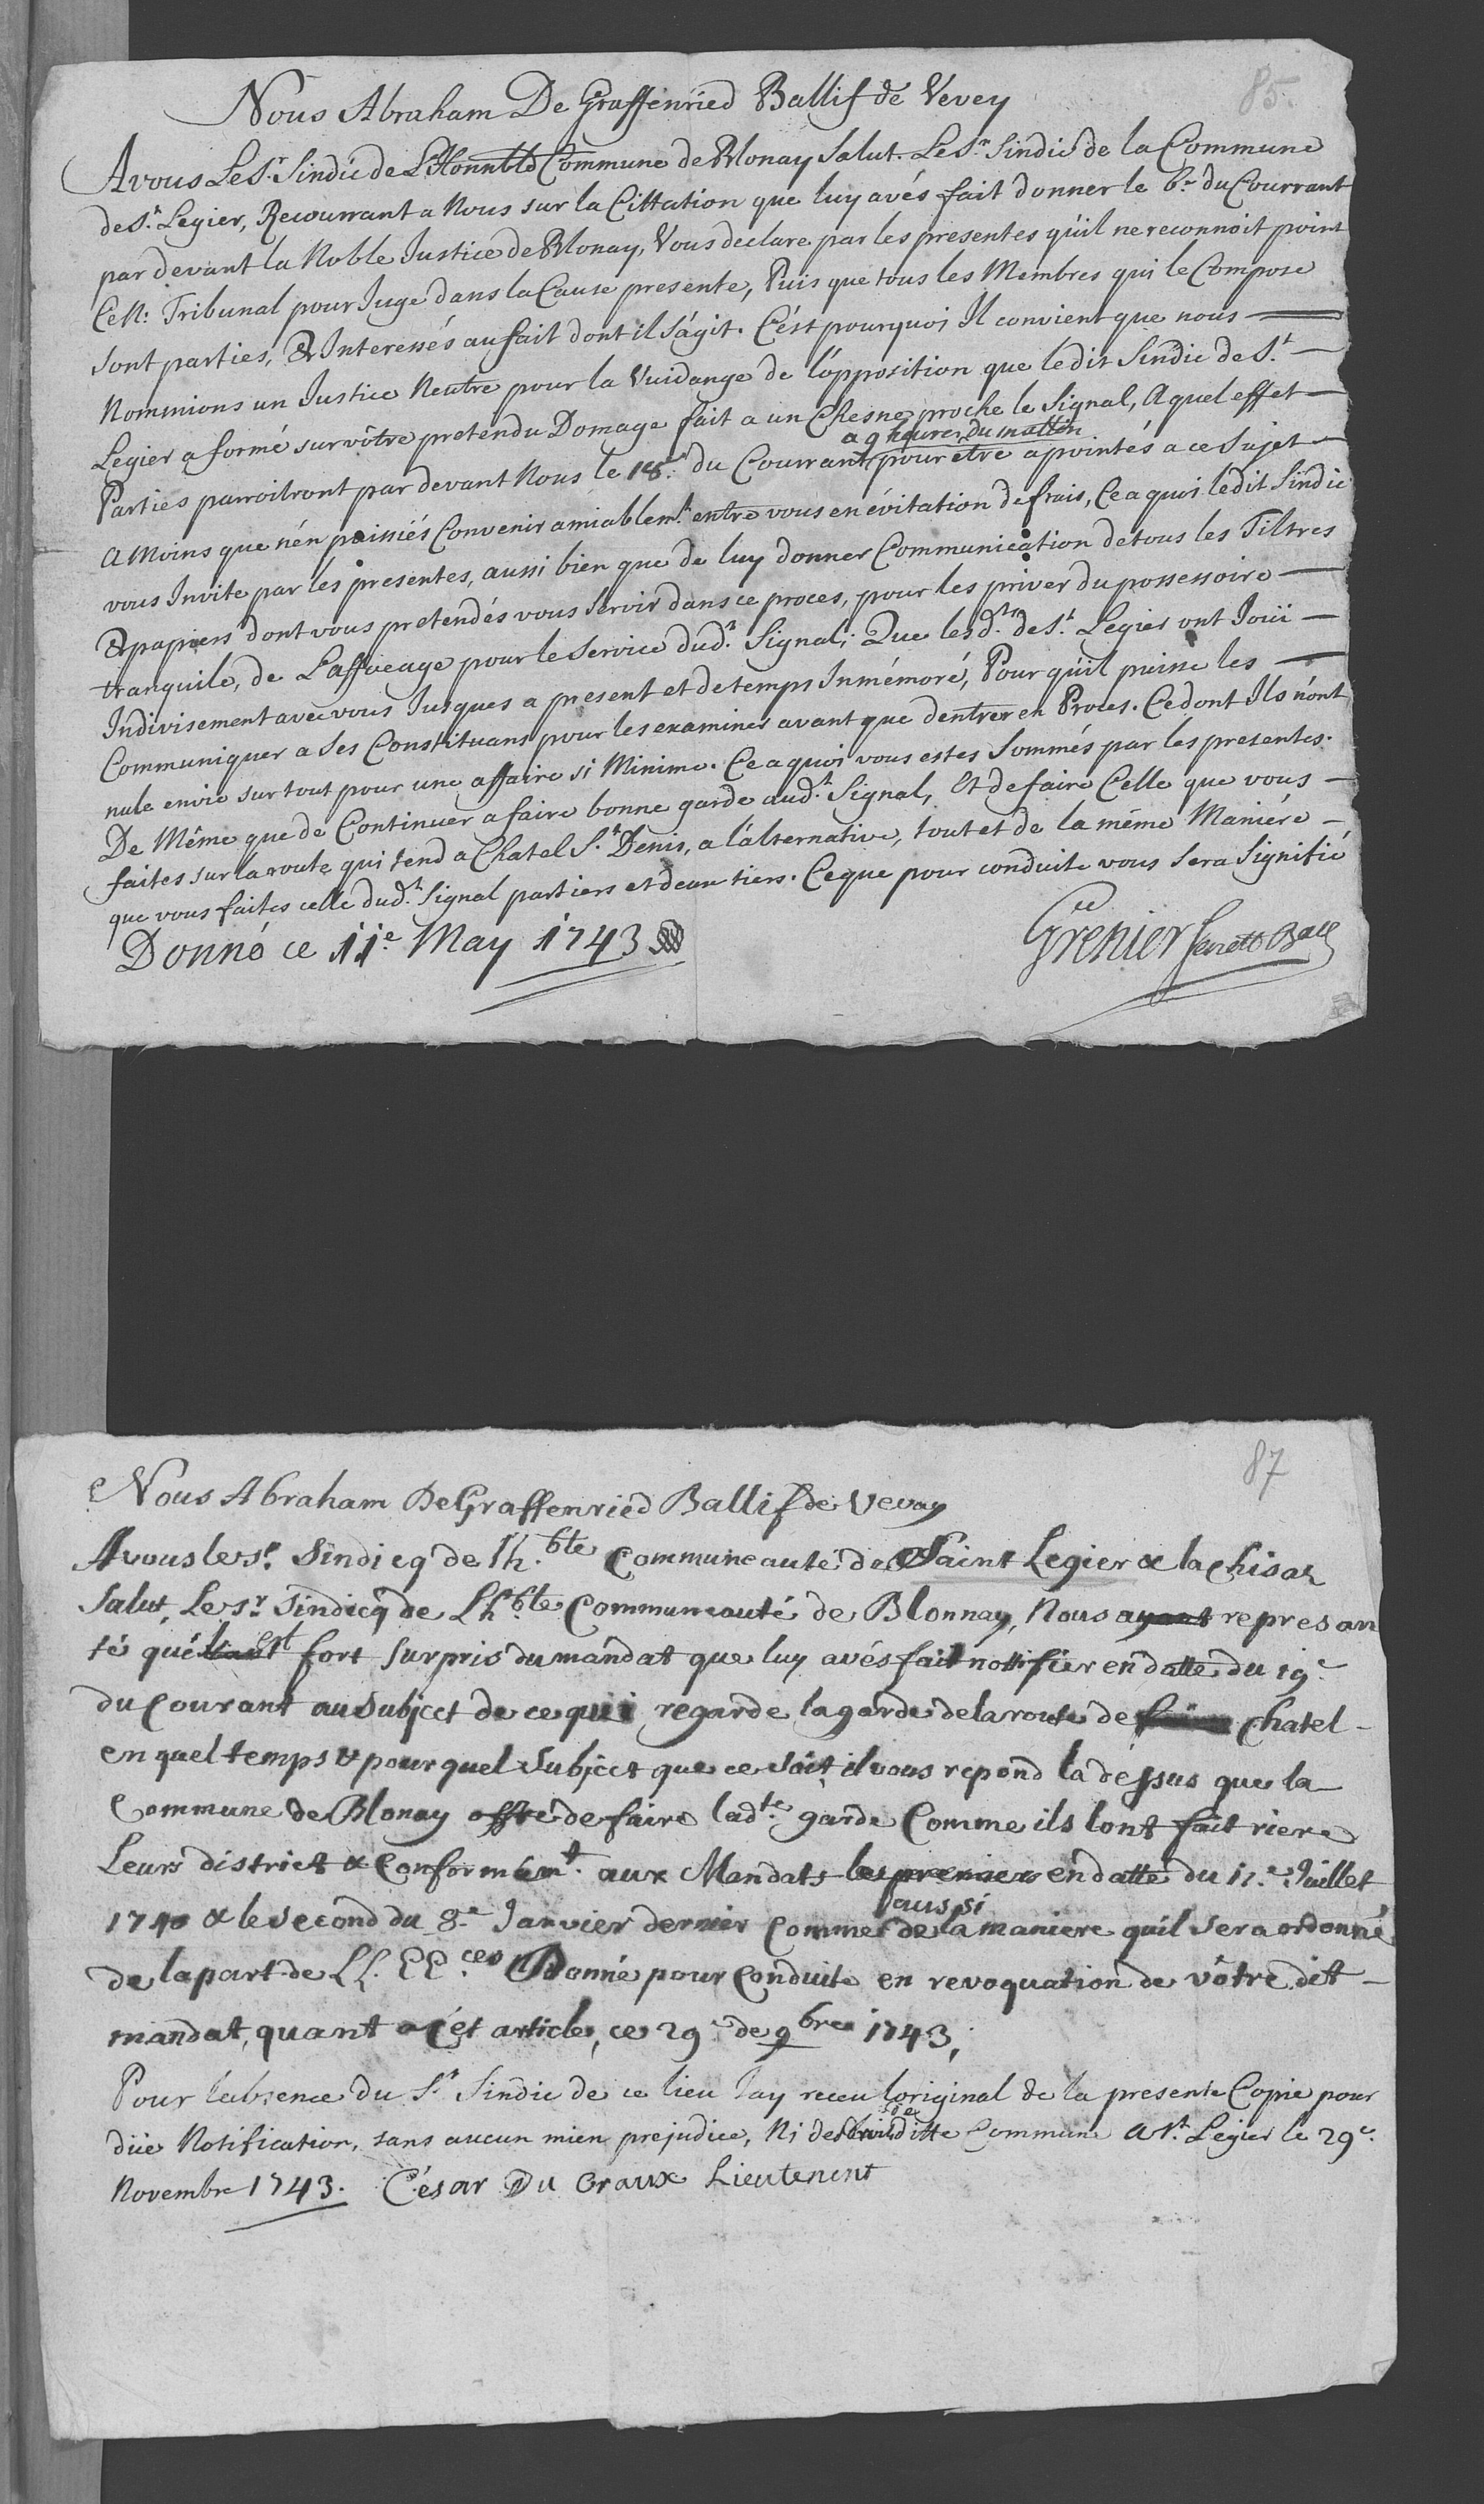 85.
Nous Abraham De Graffenried Ballif de Vevey
A vous Le Sr. Sindic de L'Honnble Commune de Blonay Salut. Le Sr. Sindic de la Commune
de St. Legier, Recourrant a Nous sur la Cittation que luy avés fait donner le 6e. du Courrant
par devant la Noble Justice de Blonay, Vous declare par les presentes qu'il ne reconnoit point
Ce N: Tribunal pour Juge dans la Cause presente, Puis que tous les Membres qui le Compose
sont parties, & Interessés au fait dont il s'agit. C'est pourquoi Il convient que nous —
Nommions un Justice Neutre pour la Vuidange de l'opposition que ledit Sindic de St. —
Legier a formé sur vôtre pretendu Domage fait a un Chesne proche le Signal, A quel effet —
a 9 heures du mattin
Parties parroitront par devant Nous le 18e. du Courrant pour etre apointés a ce Sujet —
A Moins que n'én puissiés Convenir amiablemt. entre vous en évitation de frais, Ce a quoi ledit Sindic
vous Invite par les presentes, aussi bien que de luy donner Communication de tous les Tiltres
& papiers dont vous pretendés vous servir dans ce proces, pour les priver du possessoire —
tranquile, de L'affoeage pour le service dud.t Signal; Que lesd.ts de St. Legier ont Joüi —
Indivisement avec vous Jusques a present et de temps Inmémoré, Pour qu'il puisse les —
Communiquer a Ses Constituans pour les examiner avant que d'entrer en Proces. Ce dont Ils n'ont
nule envie sur tout pour une affaire si Minime. Ce a quoi vous estes Sommés par les presentes.
De Même que de Continuer a faire bonne garde aud.t Signal, Et de faire Celle que vous —
faites sur la route qui tend a Chatel St. Denis, a l'alternative, tout et de la même Maniére —
que vous faites celle dud.t Signal par tiers et deux tiers. Ce que pour conduite vous sera Signifié
Donné ce 11e May 1743
Grenier
87
Nous Abraham De Graffenried Ballif de Vevay
A vous le Sr. Sindicq de Lh.ble Communeauté de Saint Legier & la Chisaz
Salut, Le Sr. Sindicq de Lh.ble Communeauté de Blonnay, Nous ayant represan
té qu'é est fort surpris du mandat que luy avés fait nottifier en datte du 19e
du Courant au Subject de ce qui regarde la garde de la route de Chatel -
en quel temps & pour quel Subject que ce soit, il vous repond la déssus que la
Commune de Blonay offre de faire lad.te garde Comme ils l'ont fait riere
Leurs district & Conformémt. aux Mandats les premiers en datte du 11.e Juillet
aussi
1740 & le second du 8.e Janvier dernier Comme de la maniere qu'il sera ordonné
de la part de LL. EE.ces Donné pour Conduite en revoquation de vôtre dit —
mandat, quant a cét article, ce 29e de 9bre 1743,
Pour l'absence du Sr. Sindic de ce lieu J'ay receu l'original de la presente Copie pour
düe Notification, sans aucun mien prejudice, Ni de ditte Commune A St. Legier le 29e.
Novembre 1743. César Du Craux Lieutenent